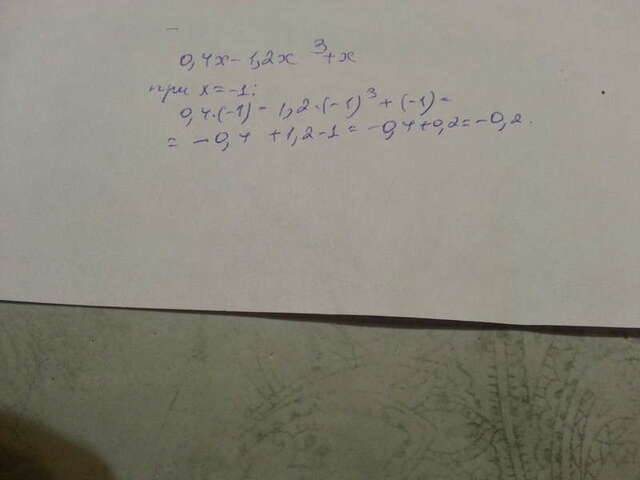 0,4x - 1,2x³ + x
при x = -1:
0,4·(-1) - 1,2·(-1)³ + (-1) =
= -0,4 + 1,2 - 1 = -0,4 + 0,2 = -0,2.